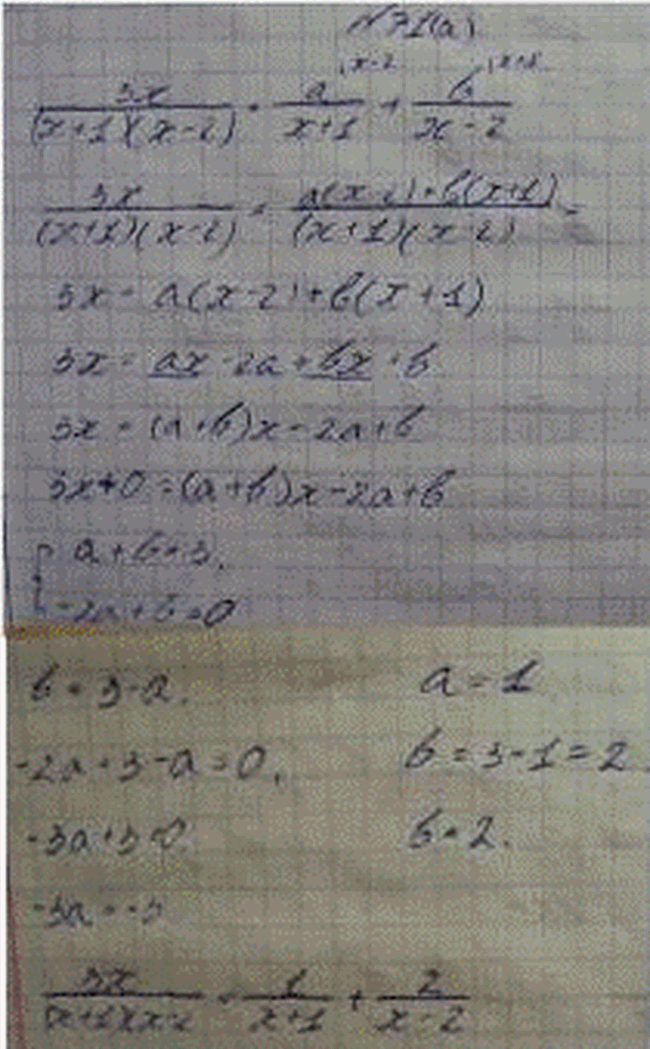 №71(а)
\x-2 \x+1
3x/((x+1)(x-2)) = a/(x+1) + b/(x-2)
3x/((x+1)(x-2)) = (a(x-2)+b(x+1))/((x+1)(x-2))
3x = a(x-2)+b(x+1)
3x = ax-2a+bx+b
3x = (a+b)x-2a+b
3x+0=(a+b)x-2a+b
{ a+b=3,
-2a+b=0
b=3-a. a=1
-2a+3-a=0, b=3-1=2
-3a+3=0 b=2.
-3a=-3
3x/((x+1)(x-2)) = 1/(x+1) + 2/(x-2)